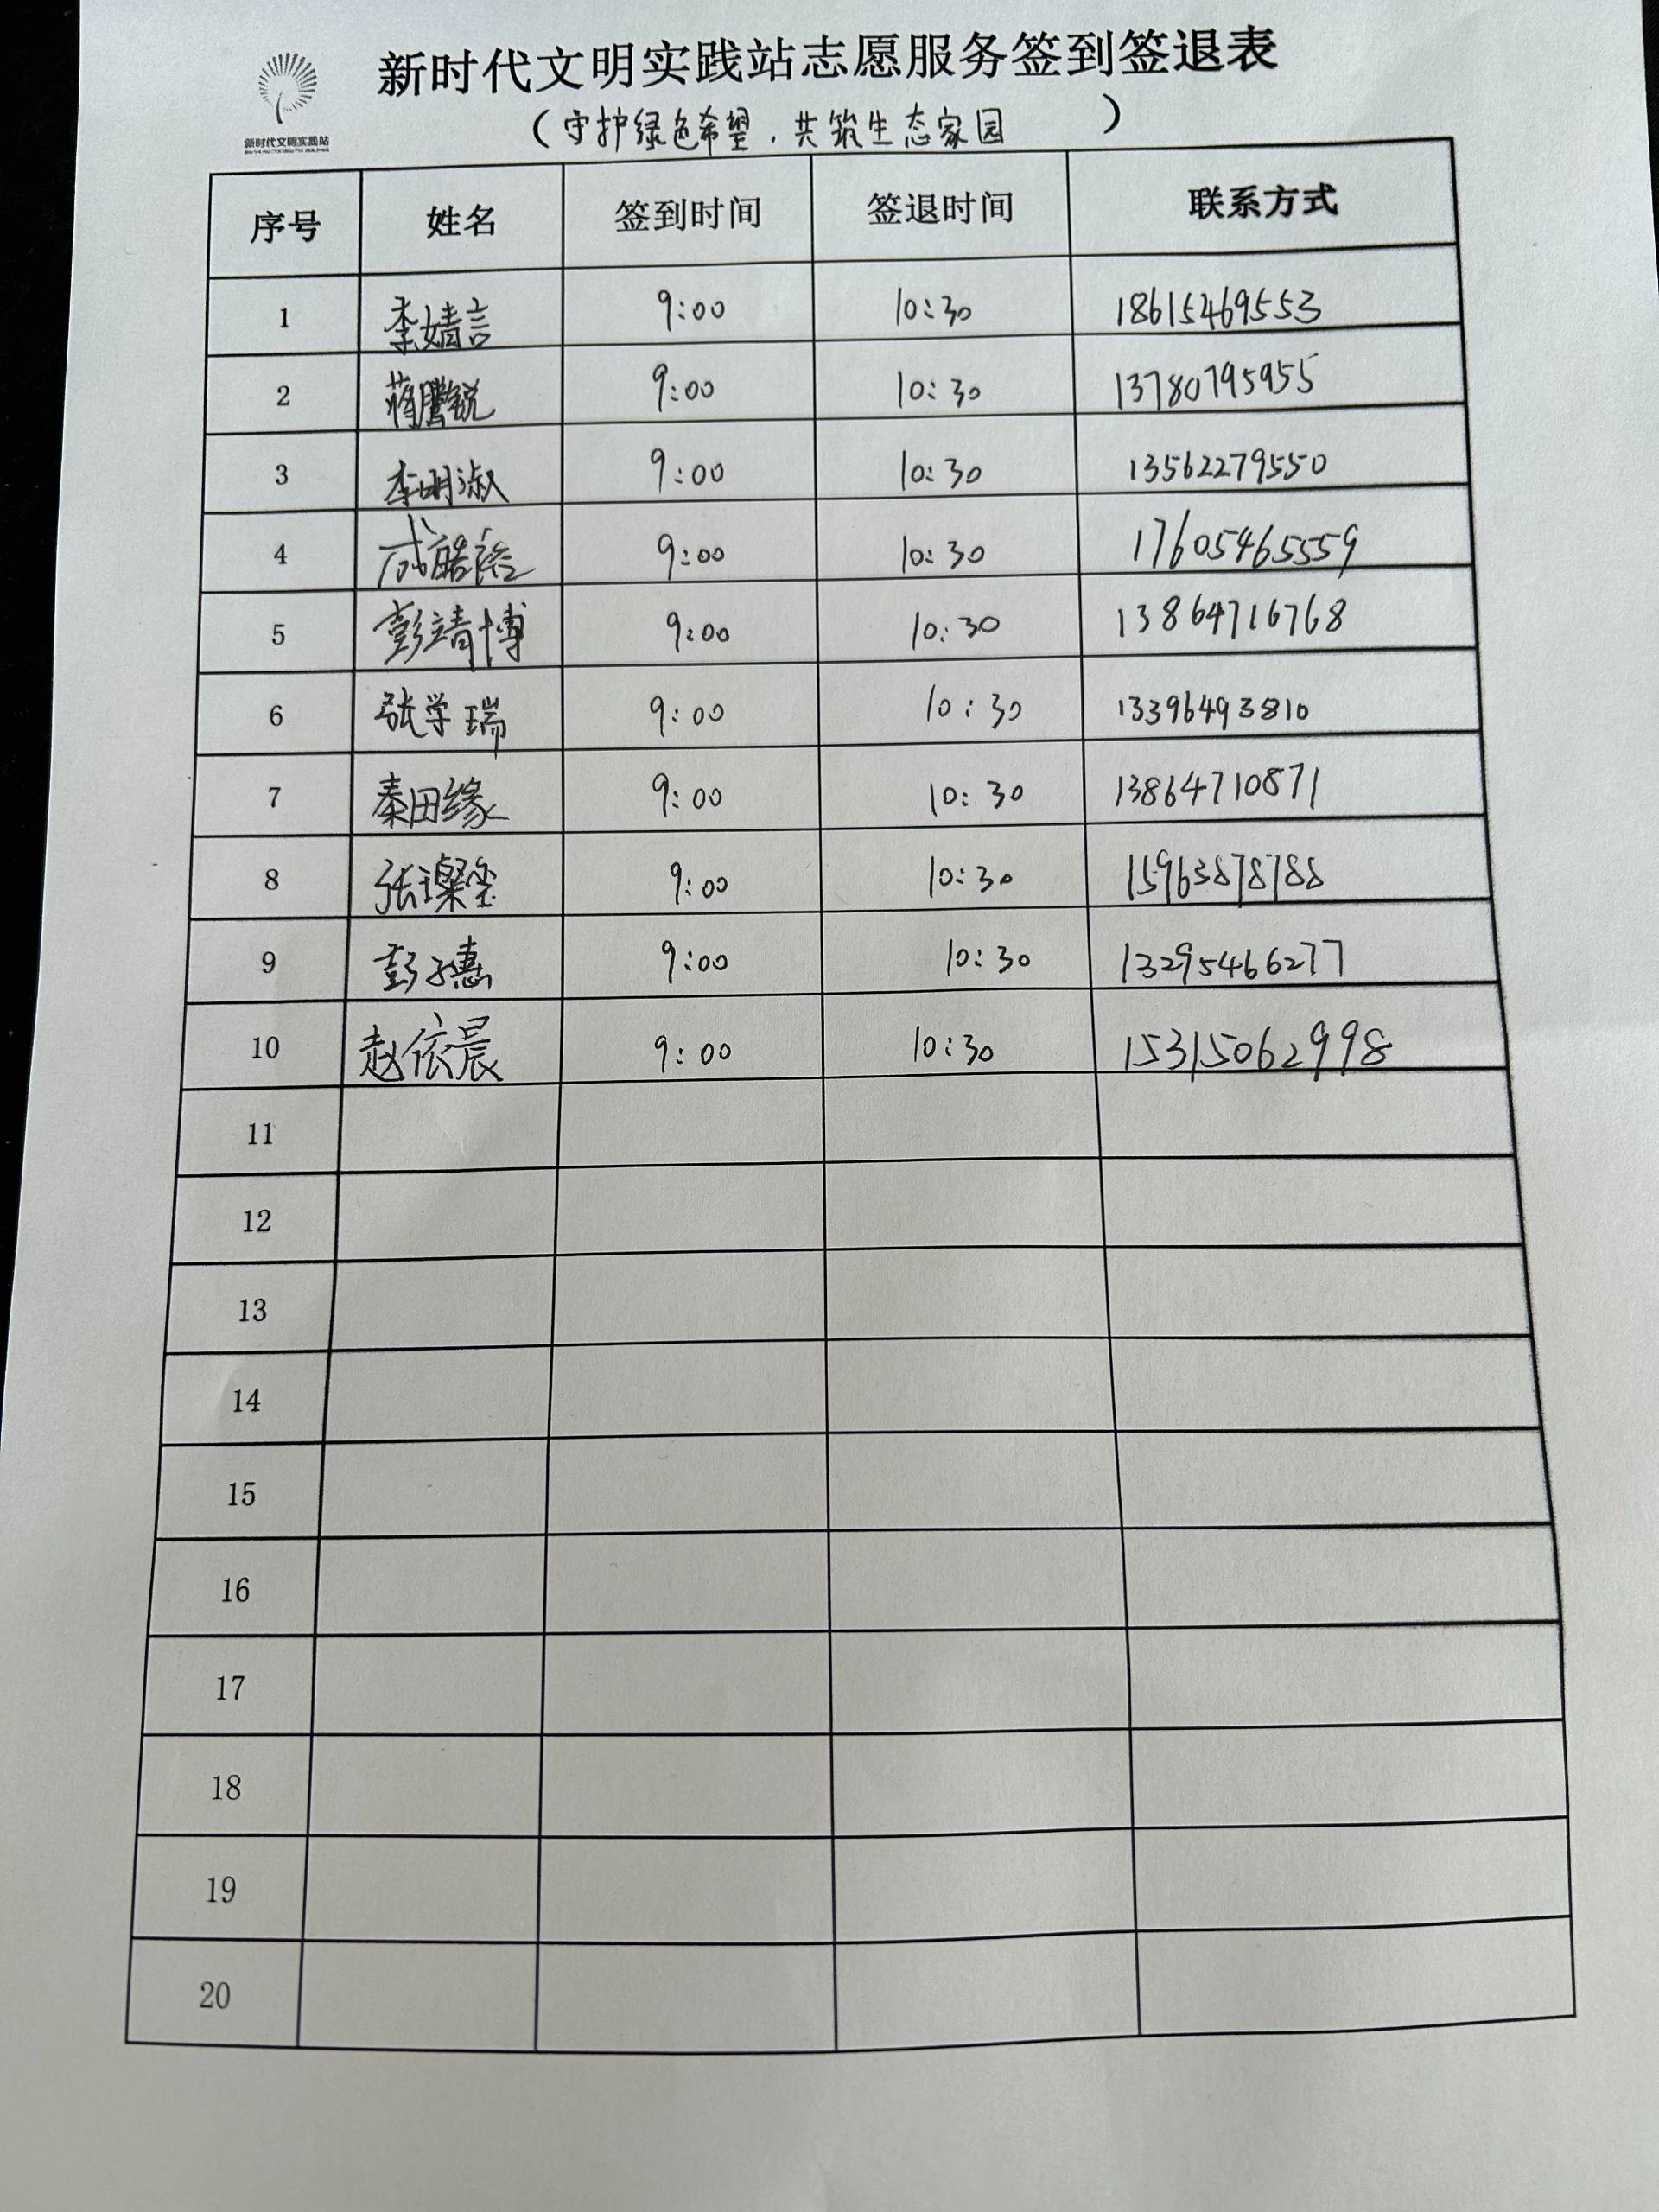 新时代文明实践站志愿服务签到签退表
新时代文明实践站
(守护绿色希望,共筑生态家园)
序号 姓名 签到时间 签退时间 联系方式
1 李婧言 9:00 10:30 18615469553
2 蒋騰锐 9:00 10:30 13780795955
3 李明淑 9:00 10:30 13562279550
4 9:00 10:30 17605465559
5 彭靖博 9:00 10:30 13864716768
6 张学瑞 9:00 10:30 13396493810
7 秦田缘 9:00 10:30 13864710871
8 张璨玺 9:00 10:30 15963878788
9 彭子惠 9:00 10:30 13295466277
10 赵依晨 9:00 10:30 15315062998
11
12
13
14
15
16
17
18
19
20